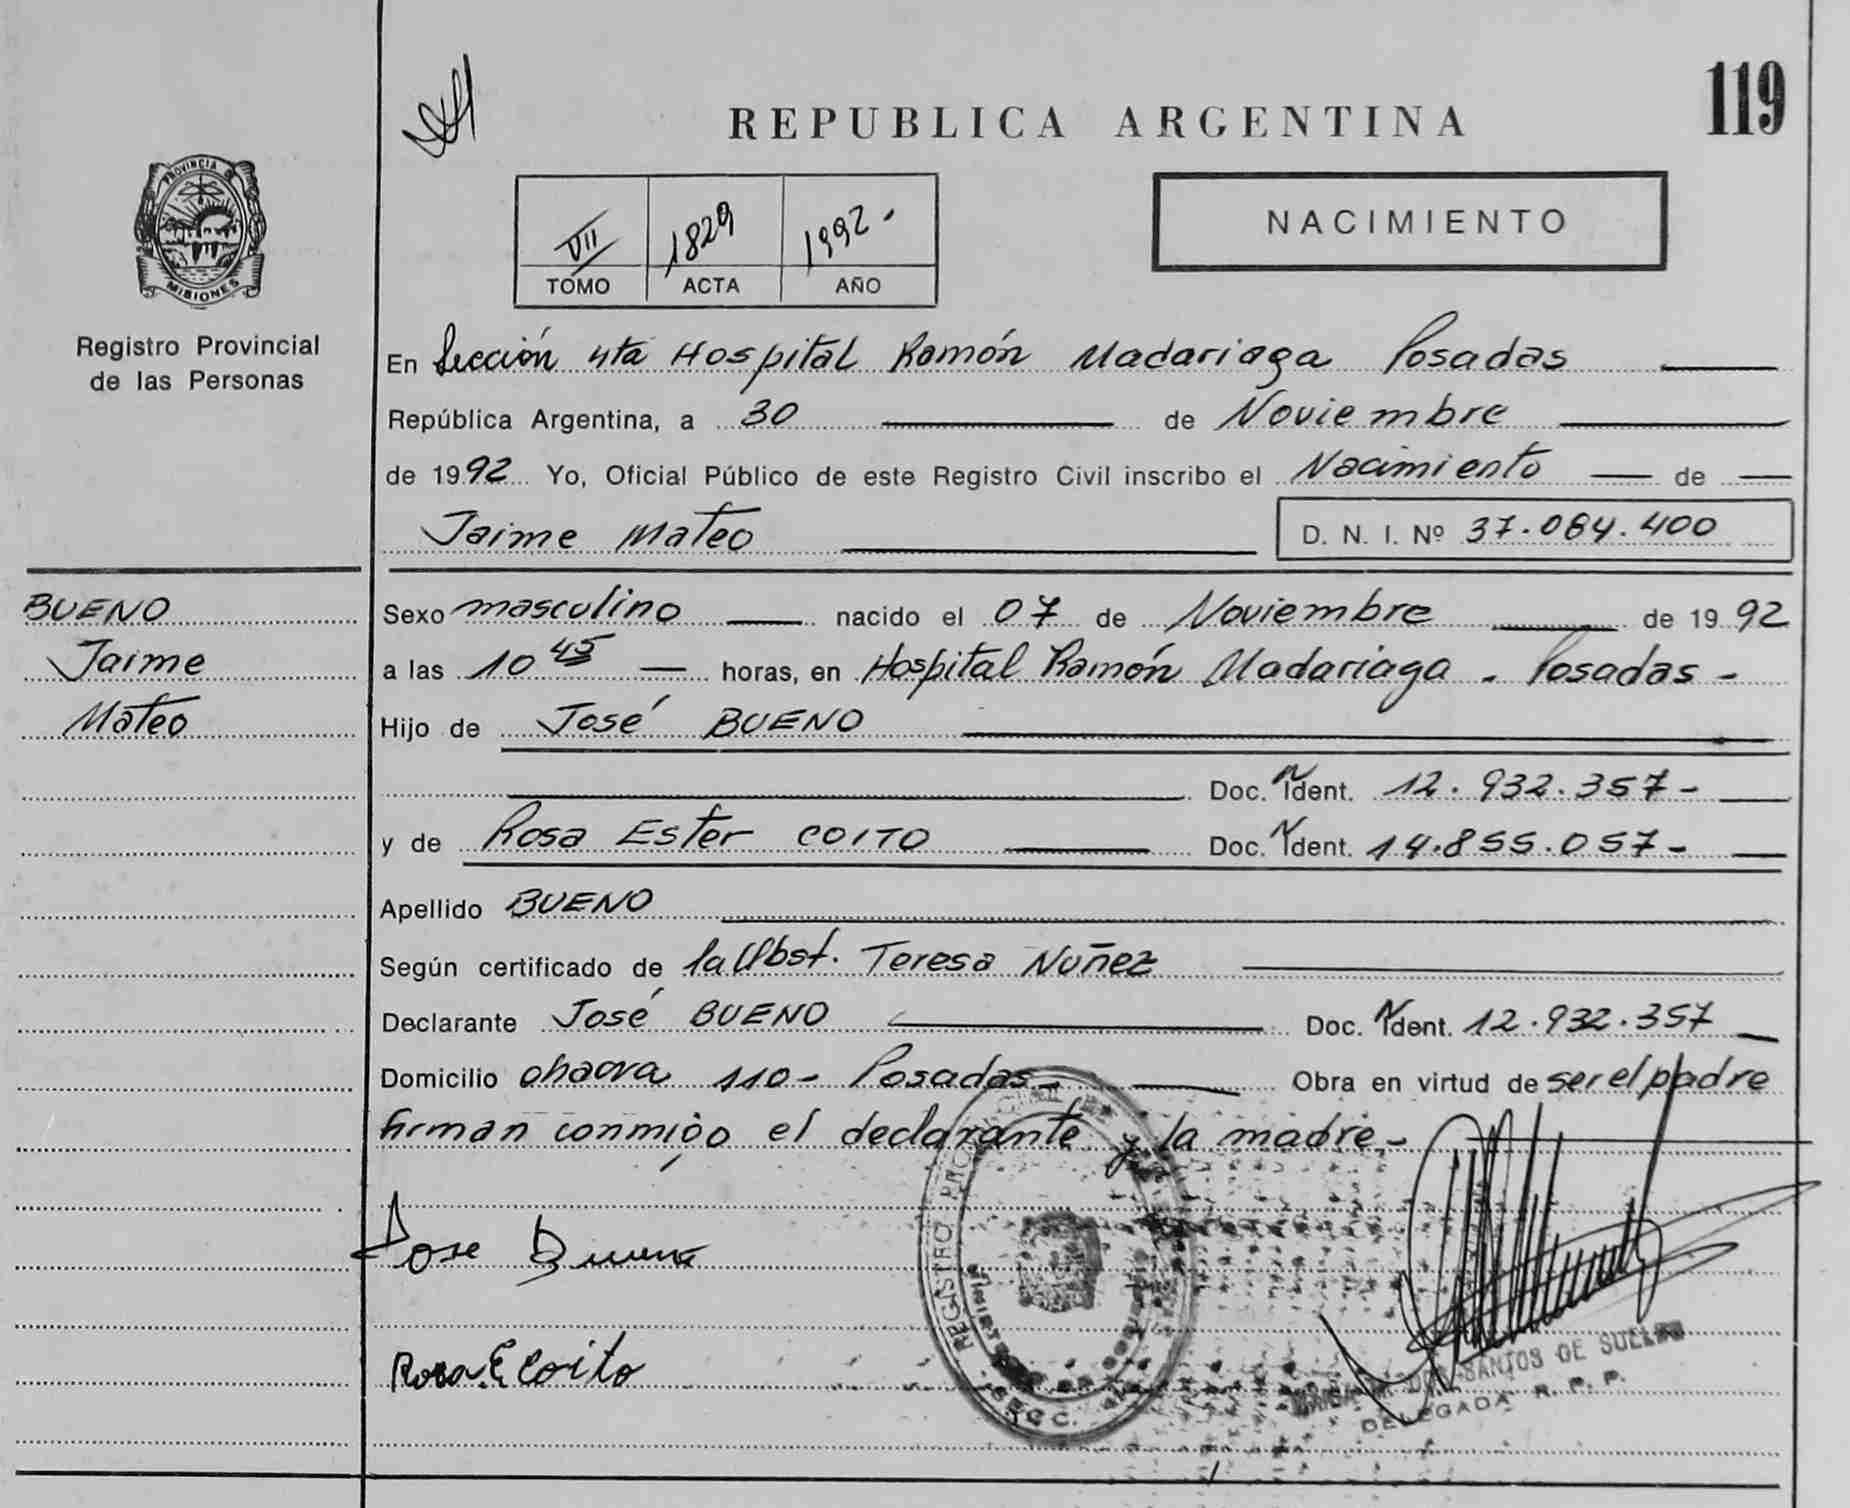 119
REPUBLICA ARGENTINA
PROVINCIA DE
MISIONES
Registro Provincial
de las Personas
VII 1829 1992-
TOMO ACTA AÑO
NACIMIENTO
En Sección 4ta Hospital Ramón Madariaga Posadas
República Argentina, a 30 de Noviembre
de 1992 Yo, Oficial Público de este Registro Civil inscribo el Nacimiento de
Jaime Mateo D. N. I. Nº 37.084.400
BUENO
Jaime
Mateo
Sexo masculino nacido el 07 de Noviembre de 1992
a las 10 45 horas, en Hospital Ramón Madariaga - Posadas -
Hijo de José BUENO
Doc. N Ident. 12.932.357-
y de Rosa Ester COITO Doc. N Ident. 14.855.057-
Apellido BUENO
Según certificado de la Obst. Teresa Nuñez
Declarante José BUENO Doc. N Ident. 12.932.357
Domicilio 110- Posadas- Obra en virtud de ser el padre
firman conmigo el declarante y la madre-
Jose Bueno
Rosa E Coito
REGISTRO
SECC.
DOS SANTOS DE
DELEGADA R. P. P.